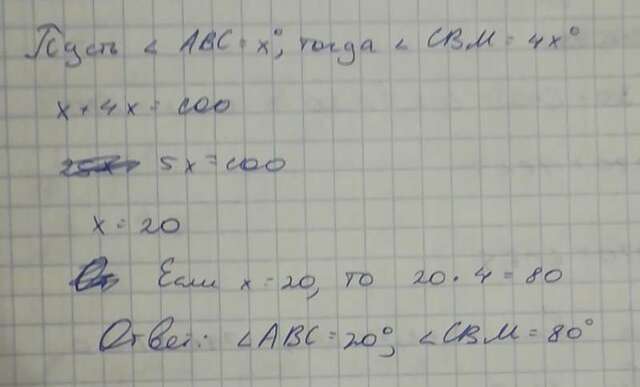 Пусть < ABC = x°, тогда < CBM = 4x°
x + 4x = 100
5x = 100
x = 20
Если x = 20, то 20 · 4 = 80
Ответ: <ABC = 20°, <CBM = 80°